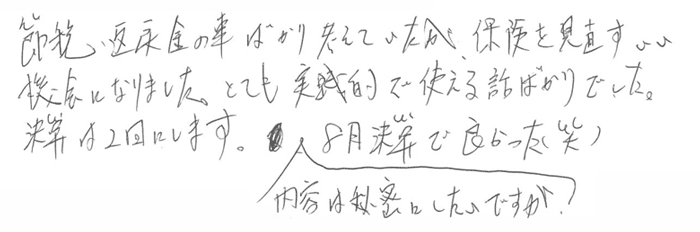 節税、返戻金の事ばかり考えていたが、保険を見直すいい
機会になりました。とても実践的で使える話ばかりでした。
決算は2回にします。 8月決算で良かった(笑)
内容は秘密にしたいですが?